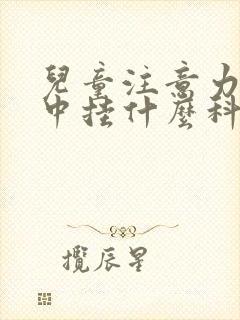 兒童注意力
中挂什麼科
攬辰星